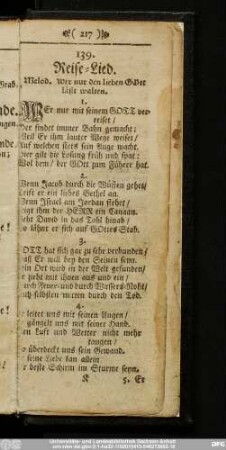 ( 217 )
139.
Reise-Lied.
Melod. Wer nur den lieben GOtt
läßt walten.
1.
WEr nur mit seinem GOTT ver-
reiset/
Der findet immer Bahn gemacht;
Weil Er ihm lauter Wege weiset/
Auf welchen stets sein Auge wacht.
Hier gilt die Losung früh und spat:
Wol dem/ der GOtt zum Führer hat.
2.
Wenn Jacob durch die Wüsten gehet/
ein liebes Bethel an.
Wenn Israel am Jordan stehet/
ihm der HERR ein Canaan.
David in das Thal hinab/
So lähnet er sich auf GOttes Stab.
3.
GOTT hat sich gar zu sehr verbunden/
Daß Er will bey den Seinen seyn.
Kein Ort wird in der Welt gefunden/
Er zieht mit ihnen aus und ein/
Durch Feuer- und durch Wassers-Noth/
selbsten mitten durch den Tod.
4.
Er leitet uns mit seinen Augen/
gängelt uns mit seiner Hand.
Wenn Luft und Wetter nicht mehr
taugen/
So überdeckt uns sein Gewand.
seine Liebe kan allein
Der beste Schirm im Sturme seyn.
K 5. Er